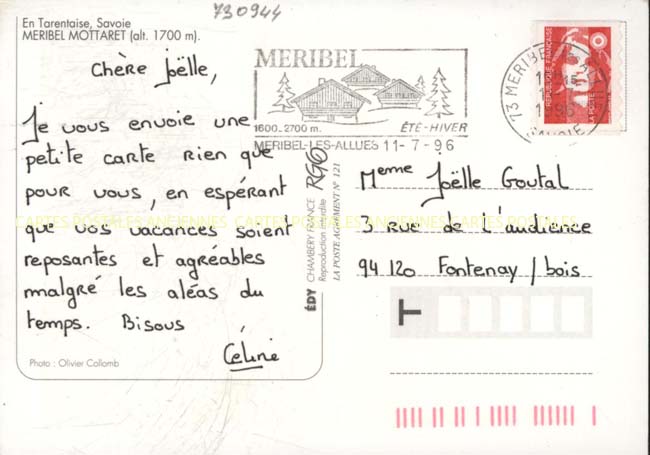 730944
En Tarentaise, Savoie
MERIBEL MOTTARET (alt. 1700 m).
Chère Joëlle,
Je vous envoie une
petite carte rien que
pour vous, en espérant
que vos vacances soient
reposantes et agréables
malgré les aléas du
temps. Bisous
Céline
Photo : Olivier Collomb
MERIBEL
1600-2700 m. ÉTÉ-HIVER
MERIBEL-LES-ALLUES 11-7-96
73 MERIBEL
SAVOIE
REPUBLIQUE FRANÇAISE
LA POSTE
ÉDY CHAMBERY FRANCE RGO
Reproduction interdite
LA POSTE AGRÉMENT N° 121
Meme Joëlle Goutal
3 rue de l'audience
94 120 Fontenay / bois
T
CARTES POSTALES ANCIENNES CARTES POSTALES ANCIENNES CARTES POSTALES